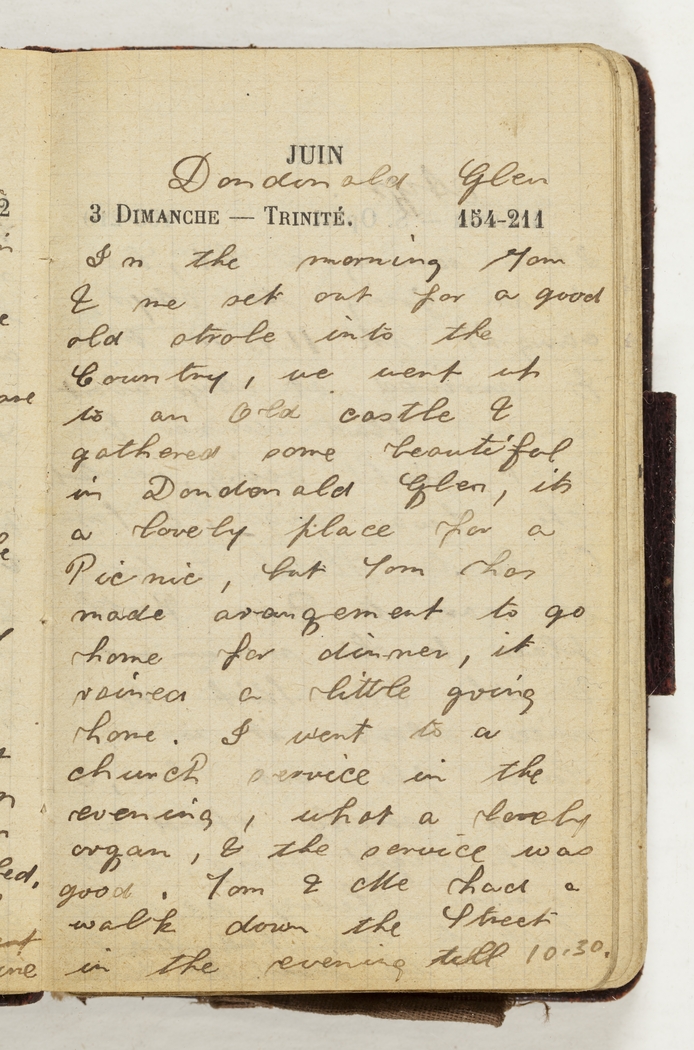 JUIN
Dondonald Glen
3 DIMANCHE — TRINITÉ. 154-211
In the morning Tom
& me set out for a good
old strole into the
Country, we went up
to an Old castle &
gathered some beautiful
in Dondonald Glen, its
a lovely place for a
Picnic, but Tom has
made arangement to go
home for dinner, it
rained a little going
home. I went to a
church service in the
evening, what a lovely
organ, & the service was
good. Tom & Me had a
walk down the Street
in the evening till 10.30.